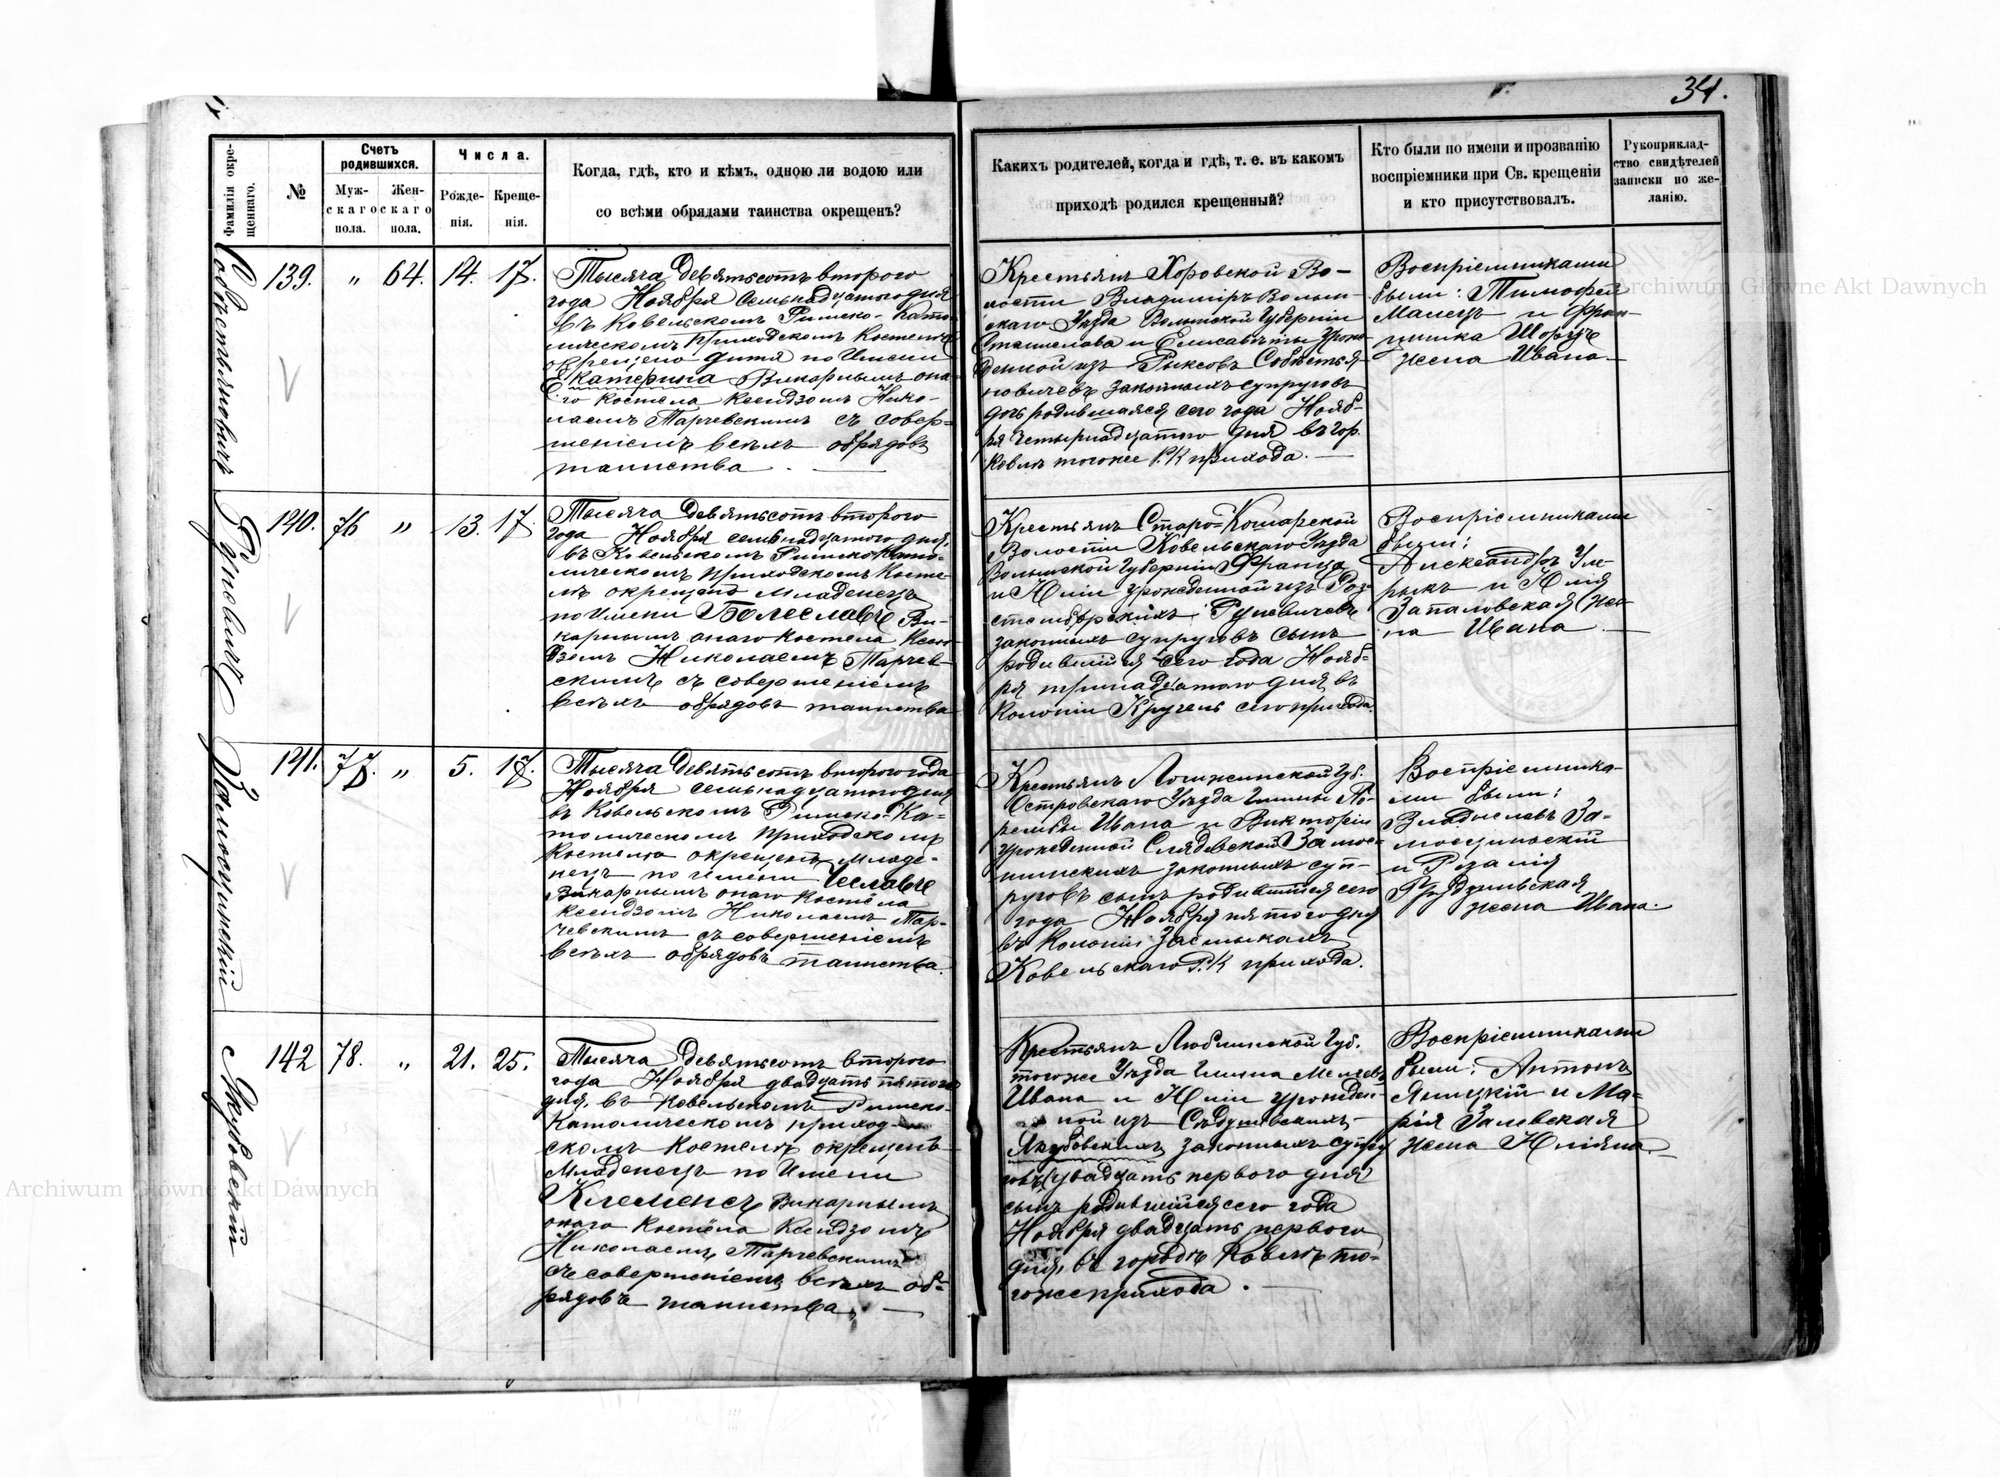 34.
Фамилія окре-
щеннаго.
№
Счетъ
родившихся.
Муж-
скаго
пола.
Жен-
скаго
пола.
Числа.
Рожде-
нія.
Креще-
нія.
Когда, гдѣ, кто и кѣмъ, одною ли водою или
со всѣми обрядами таинства окрещенъ?
Какихъ родителей, когда и гдѣ, т. е. въ какомъ
приходѣ родился крещенный?
Кто были по имени и прозванію
воспріемники при Св. крещеніи
и кто присутствовалъ.
Рукоприклад-
ство свидѣтелей
записки по же-
ланію.
139. " 64. 14. 17.
Тысяча девятьсотъ второго
года Ноября семьнадцатого дня
въ Ковельскомъ Римско-като-
лическомъ приходскомъ костелѣ
окрещено дитя по имени
Екатерина Викарнымъ она-
го костела Ксендзомъ Нико-
лаемъ Тарчевскимъ съ совер-
шеніемъ всѣхъ обрядовъ
таинства.
Крестьянъ Хоровской Во-
лости Владиміръ Волын-
скаго Уѣзда Волынской Губерніи
Станислава и Елисаветы урож-
денной изъ
законныхъ супруговъ
дочь родившаяся сего года Нояб-
ря четырнадцатого дня въ гор.
Ковлѣ тогоже Р.К прихода.
Воспріемниками
были: Тимофей
Малецъ и Фран-
цишка
жена Ивана
Руневичъ
140. 76 " 13. 17.
Тысяча девятьсотъ второго
года Ноября семьнадцатого дня,
въ Ковельскомъ Римскокато-
лическомъ приходскомъ Косте-
лѣ окрещенъ младенецъ
по имени Болеславъ Ви-
карнымъ онаго костела Ксен-
дзомъ Николаемъ Тарчев-
скимъ съ совершеніемъ
всѣхъ обрядовъ таинства
Крестьянъ Старо-Кошарской
Волости Ковельскаго Уѣзда
Волынской Губерніи Франца
и Юліи урожденной изъ Роз-
Руневичевъ
законныхъ супруговъ сынъ
родившійся сего года Нояб-
ря тринадцатого дня въ
Колоніи Кругель сего прихода.
Воспріемниками
были:
Александръ Уль-
рыхъ и Юлія
Запаловская же-
на Ивана
Замосцинскій
141. 77. " 5. 17.
Тысяча девятьсотъ второго года
Ноября семьнадцатого дня
въ Ковельскомъ Римско-Ка-
толическомъ приходскомъ
костелѣ окрещенъ младе-
нецъ по имени Чеславъ
Викарнымъ онаго костела
ксендзомъ Николаемъ Тар-
чевскимъ съ совершеніемъ
всѣхъ обрядовъ таинства.
Крестьянъ Ломжинской Губ.
Островскаго Уѣзда Гмины По-
рембы Ивана и Викторіи
урожденной Слядевской Замос-
цинскихъ законныхъ суп-
руговъ сынъ родившійся сего
года Ноября пятого дня
въ Колоніи Засмыкахъ
Ковельскаго Р.К прихода.
Воспріемника-
ми были:
Владиславъ За-
мосцинскій
и Розалія
жена Ивана.
Якубовскій
142 78. " 21. 25.
Тысяча девятьсотъ второго
года Ноября двадцать пятого
дня, въ Ковельскомъ Римско-
Католическомъ приход-
скомъ костелѣ окрещенъ
младенецъ по имени
Клеменсъ Викарнымъ
онаго костела Ксендзомъ
Николаемъ Тарчевскимъ
съ совершеніемъ всѣхъ об-
рядовъ таинства.
Крестьянъ Люблинской Губ.
тогоже Уѣзда Гмина
Ивана и Юліи урожден-
ной изъ
Якубовскихъ законныхъ супру
говъ (двадцать первого дня)
сынъ родившійся сего года
Ноября двадцать первого
дня, въ городѣ Ковелѣ то-
гоже прихода.
Воспріемниками
были: Антонъ
Яницкій и Ма-
рія Залевская
жена Юліяна.
Archiwum Główne Akt Dawnych
Archiwum Główne Akt Dawnych